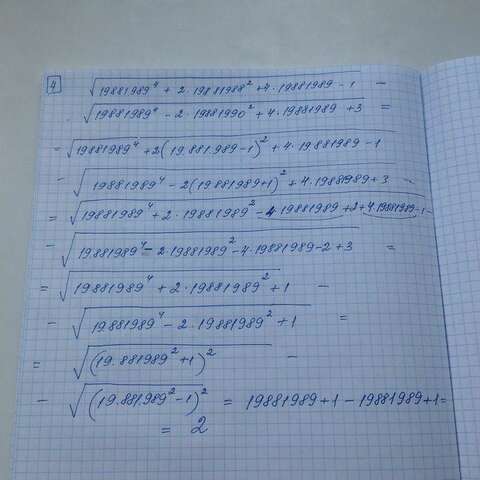 4
√19881989⁴ + 2·19881988² + 4·19881989 - 1 -
√19881989⁴ - 2·19881990² + 4·19881989 + 3 =
= √19881989⁴ + 2(19.881.989-1)² + 4·19881989 - 1
- √19881989⁴ - 2(19881989+1)² + 4·19881989 + 3 -
= √19881989⁴ + 2·19881989² - 4·19881989 + 2 + 4·19881989 - 1 -
- √19.881989⁴ - 2·19881989² - 4·19881989 - 2 + 3 =
= √19881989⁴ + 2·19881989² + 1 -
- √19881989⁴ - 2·19881989² + 1 =
= √(19.881989² + 1)² -
- √(19.881.989² - 1)² = 19881989 + 1 - 19881989 + 1 =
= 2